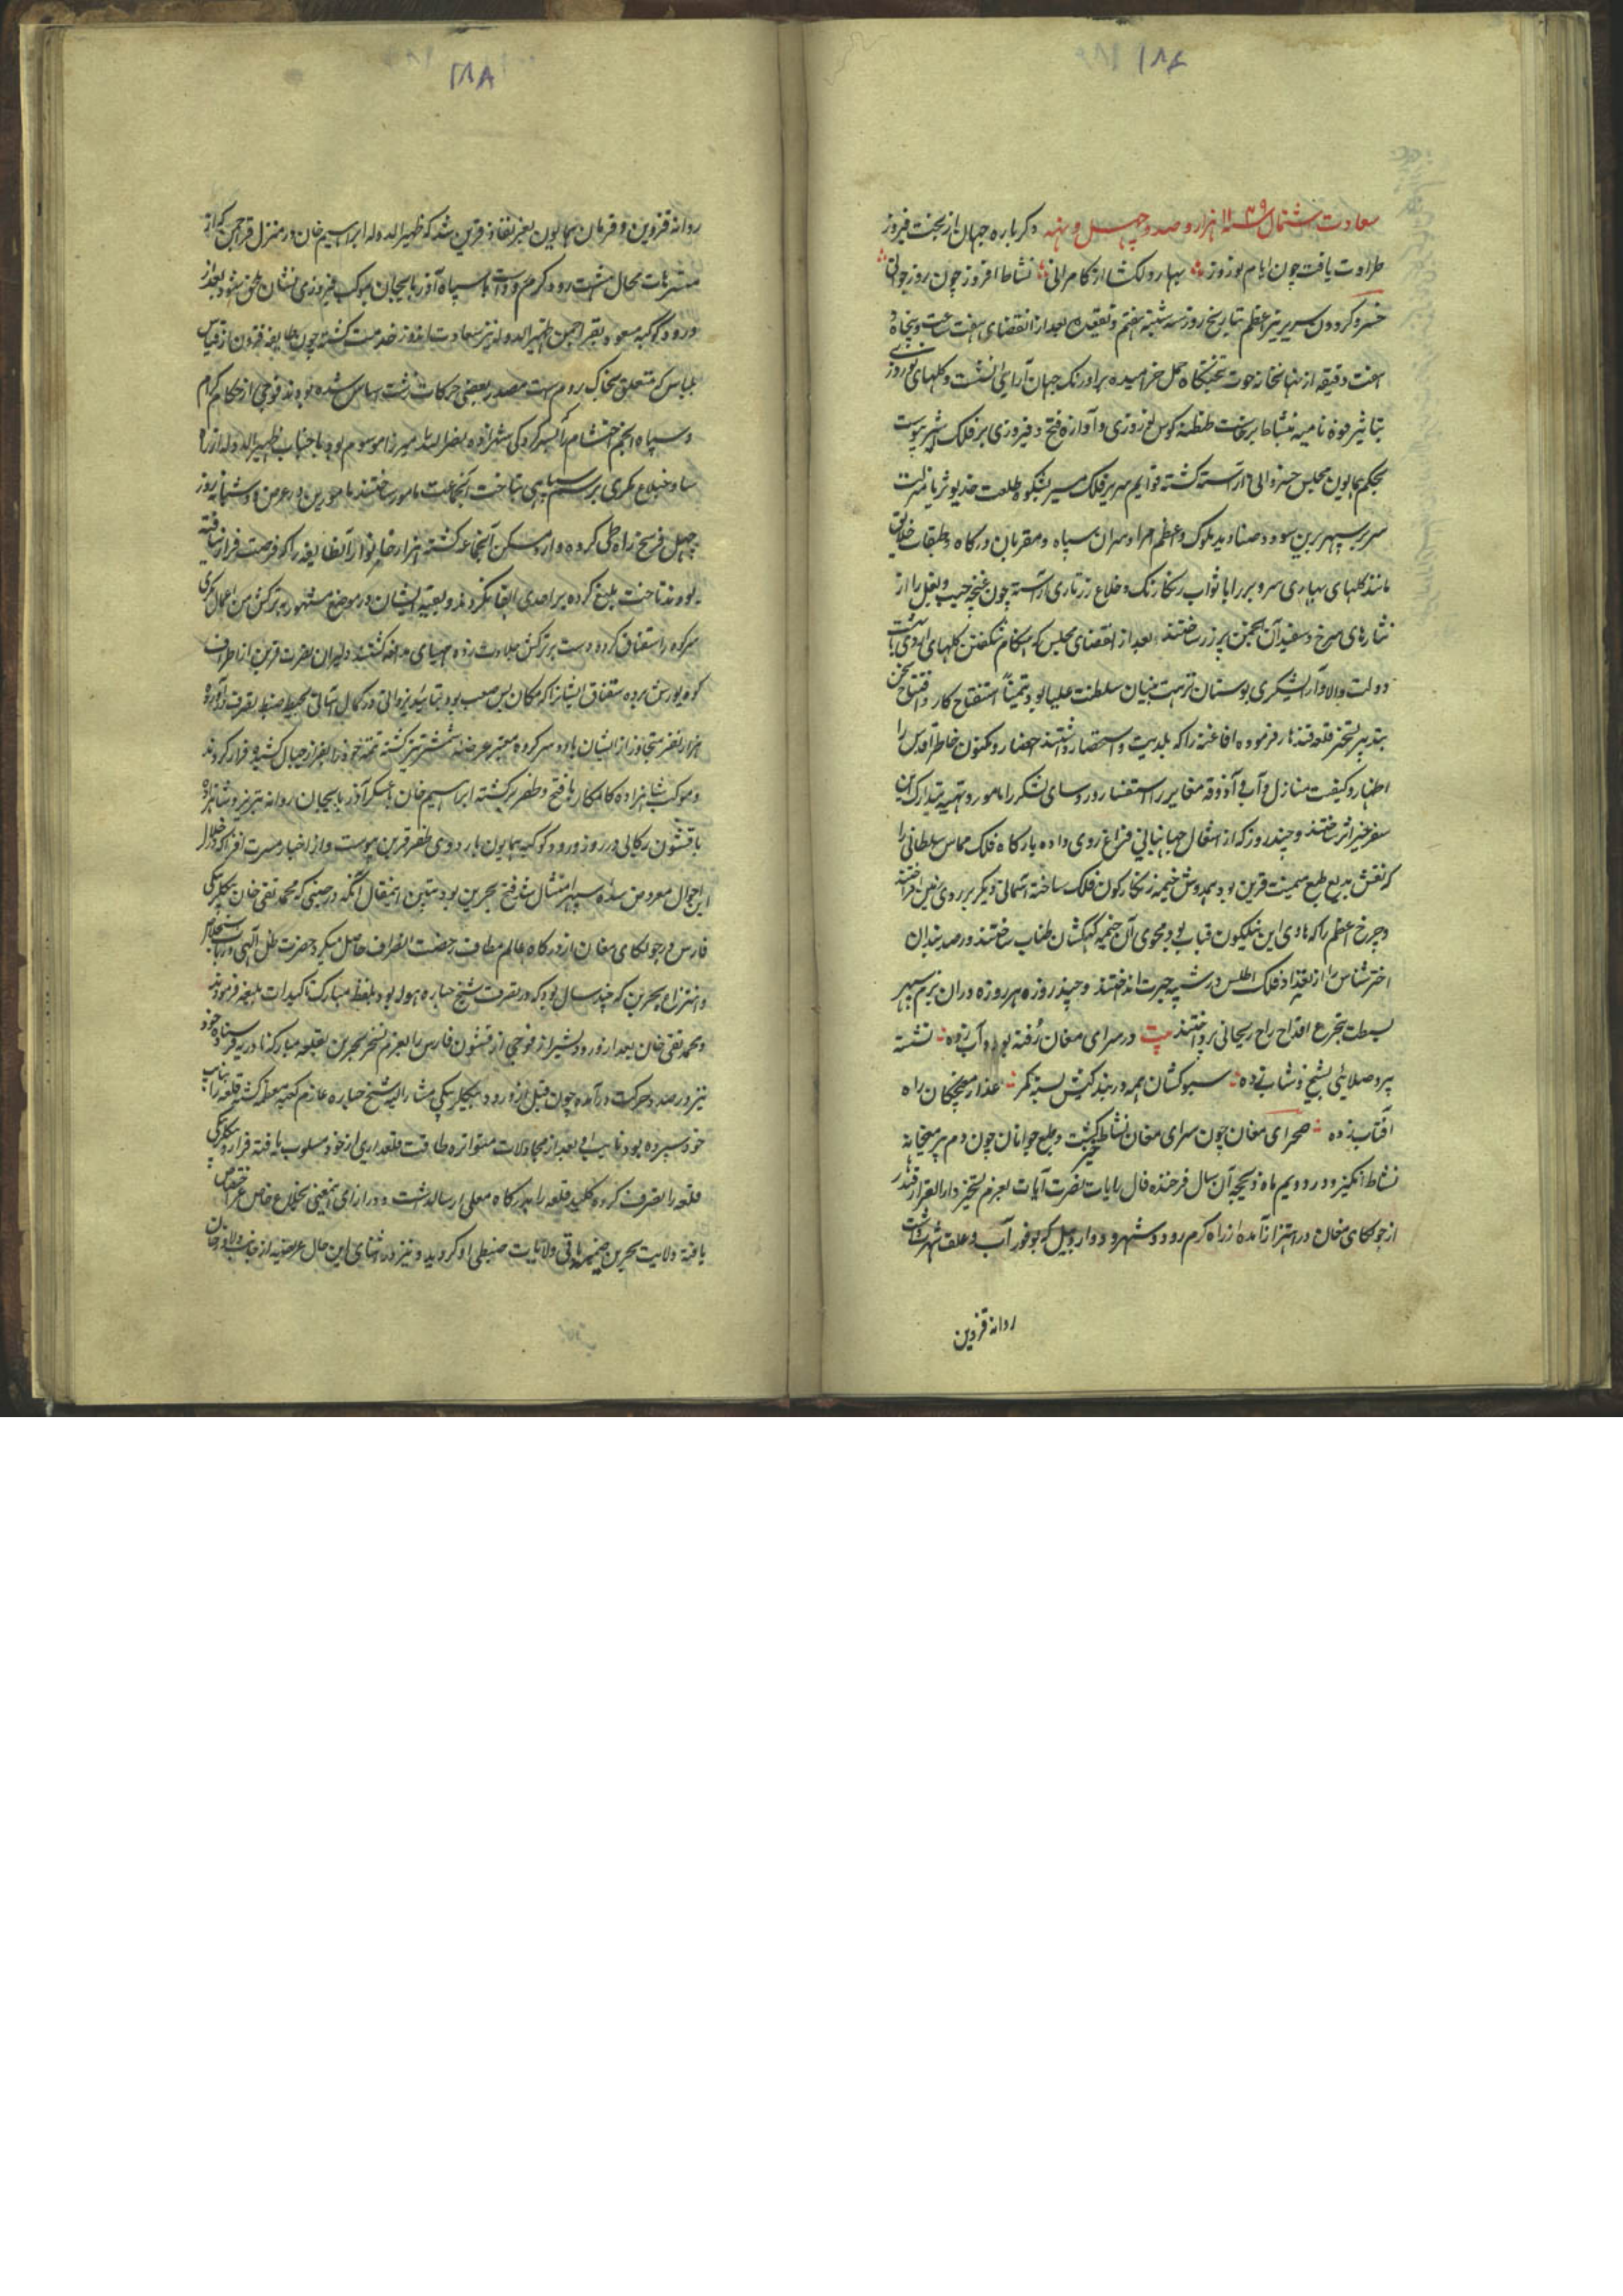 ۱۸۸
سعادت اشتمال سنه ۱۱۴۹ هزار و صد و چهل و نهم دکرباره جهان از بخت فیروز
طراوت یافت چون ایام نوروز بهار دلکشا از کامرانی نشاط افروز چون روز جوانی
خسرو کردون سریر نیر اعظم بتاریخ روز سه شنبه هفتم ذیقعده بعد از انقضای هفت ساعت و پنجاه و
هفت دقیقه از نهانخانه حوت بتختکاه حمل خرامیده بر اورنک جهان آرایی نشست و کلهای نوروزی
بتاثیر قوه نامیه بنشاط برخاست طنطنه کوس نوروزی و آوازه فتح و فیروزی بر فلک اثیر پیوست
بحکم همایون مجلس خسروانی آراسته کشته قوایم سریر فلک مسیر بشکوه طلعت خدیو ثریا منزلت
سر بر سپهر برین سود و صنادید ملوک و اعظم امرا و سران سپاه و مقربان درکاه و طبقات خلایق
مانند کلهای بهاری سر و بر را باثواب رنکارنک و خلاع زرتاری آراسته چون غنچه جیب و بغل را از
نثارهای سرخ و سفید آن انجمن پر زر ساختند بعد از انقضای مجلس که هنکام شکفتن کلهای اردی بهشت
دولت والا و آرایشکری بوستان نزهت بنیان سلطنت علیا بود تیمنا استفتاح کار و افتتاح سخن
بتدبیر تسخیر قلعه قندهار فرموده افاغنه را که بلدیت و استحضار داشتند احضار و مکنون خاطر اقدس را
اظهار و کیفیت منازل و آب و آذوقه معابر را استفسار و روسای لشکر را مامور و تهیه تدارک این
سفر خیر اثر ساختند و چند روز که از اشغال جهانبانی فراغ روی داده بارکاه فلک مماس سلطانی را
که نقش بدیع طبع میمنت قرین بود همدوش خیمه زنکارکون فلک ساخته آسمانی دیکر بر روی زمین افراختند
و چرخ اعظم را که حاوی این نیلکون قباب بود محوی آن خیمه کهکشان طناب ساختند و رصد بندان
اختر شناس را از تعداد فلک اطلس در شبهه حیرت انداختند و چند روزه هر روزه در آن بزم سپهر
بسطت بتجرع اقداح راح ریحانی پرداختند بیت در سرای مغان رفته بود و آب زده نشسته
پیر و صلایی بشیخ و شاب زده سبوکشان همه در بندکیش بسته کمر عذار مغبچکان راه
آفتاب زده صحرای مغان چون سرای مغان نشاط خیز کشت و طبع جوانان چون دم پیر میخانه
نشاط انکیز و در دویم ماه ذیحجه آن سال فرخنده فال رایات نصرت آیات بعزم تسخیر دارالقرار قندهار
از جولکای مغان در اهتزاز آمده از راه کرم رود و هشترود و اردبیل که بوفور آب و علف شهرت داشت
روانه قزوین
۱۸۸
روانه قزوین و فرمان همایون بعز نفاذ قرین شد که ظهیرالدوله ابراهیم خان در منزل قراچمن که از
متنزهات محال هشت رود و کرم رود است با سپاه آذربایجان بموکب فیروزی نشان ملحق شود بعد از
ورود کوکبه مسعود بقراچمن ظهیرالدوله نیز سعادت اندوز خدمت کشته چون طایفه
بلباس که متعلق بخاک روم است مصدر بعضی حرکات زشت اساس شده بودند فوجی از حکام کرام
و سپاه انجم احتشام را بسرکردکی شهزاده نصرالله میرزا موسوم بود با جناب ظهیرالدوله از راه
ساوخبلاغ مکری برسم سپاهی بتاخت آنجماعت مامور ساختند مامورین در عرض دو شبانه روز
چهل فرسخ راه طی کرده وارد مسکن آنجماعه کشته هزار خانوار آنطایفه را که فرصت فرار نیافته
بودند تاخت بلیغ کرده بر احدی ابقا نکردند و بقیه ایشان در موضع مشهور به ترکش من اعمال مکری
سر کوه را سقناق کرده دست بر ترکش جلادت زده مهیای مدافعه کشتند دلیران نصرت قرین از اطراف
کوه یورش برده سقناق ایشان را که مکان بس صعب بود بتایید ایزدی در کمال آسانی بحیطه ضبط بتصرف درآورده
هزار نفر متجاوز از ایشان با دو سرکرده معتبر عرضه شمشیر تیز کشته تتمه خود را بفراز جبال کشیده فرار کردند
و موکب شاهزاده کامکار با فتح و ظفر برکشته ابراهیم خان با عسکر آذربایجان روانه تبریز و شاهزاده
با قشون رکابی در روز ورود کوکبه همایون باردوی ظفر قرین پیوست و از اخبار مسرت افزا که در خلال
این احوال معروض سده سپهر امتثال شد فتح بحرین بود تبیین اینمقال آنکه در حینی که محمد تقی خان بیکلربیکی
فارس در جولکای مغان از درکاه عالم مطاف رخصت انصراف حاصل میکرد حضرت ظل الهی در باب استخلاص
و انتزاع بحرین که چند سال بود که در تصرف شیخ جباره هوله بود بلفظ مبارک تاکیدات بلیغه فرمودند
و محمد تقی خان بعد از ورود بشیراز فوجی از قشون فارس را بعزم تسخیر بحرین بقلعه مبارکه نادریه فرستاده خود
نیز در صدد حرکت درآمده چون قبل از ورود بیکلربیکی مشارالیه شیخ جباره عازم کعبه معظمه کشته قلعه را بنایب
خود سپرده بود نایب او بعد از مجادلات متواتره طاقت قلعه داری از خود مسلوب یافته فرار و بیکلربیکی
قلعه را تصرف کرده کلید قلعه را بدرکاه معلی ارسالداشت و در ازای اینمعنی بخلاع خاص عز اختصاص
یافته ولایت بحرین ضمیمه باقی ولایات ضبطی او کردید و نیز در اثنای این حال عریضه از جانب دلاور خان